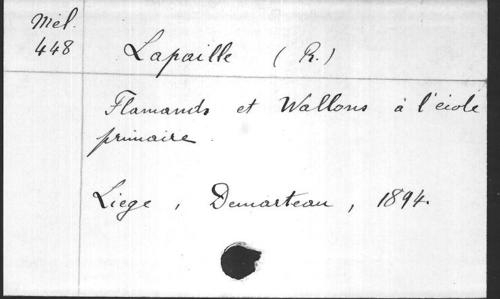 Mél.
448
Lapaille (R.)
Flamands et Wallons à l'école
primaire.
Liege, Demarteau, 1894.